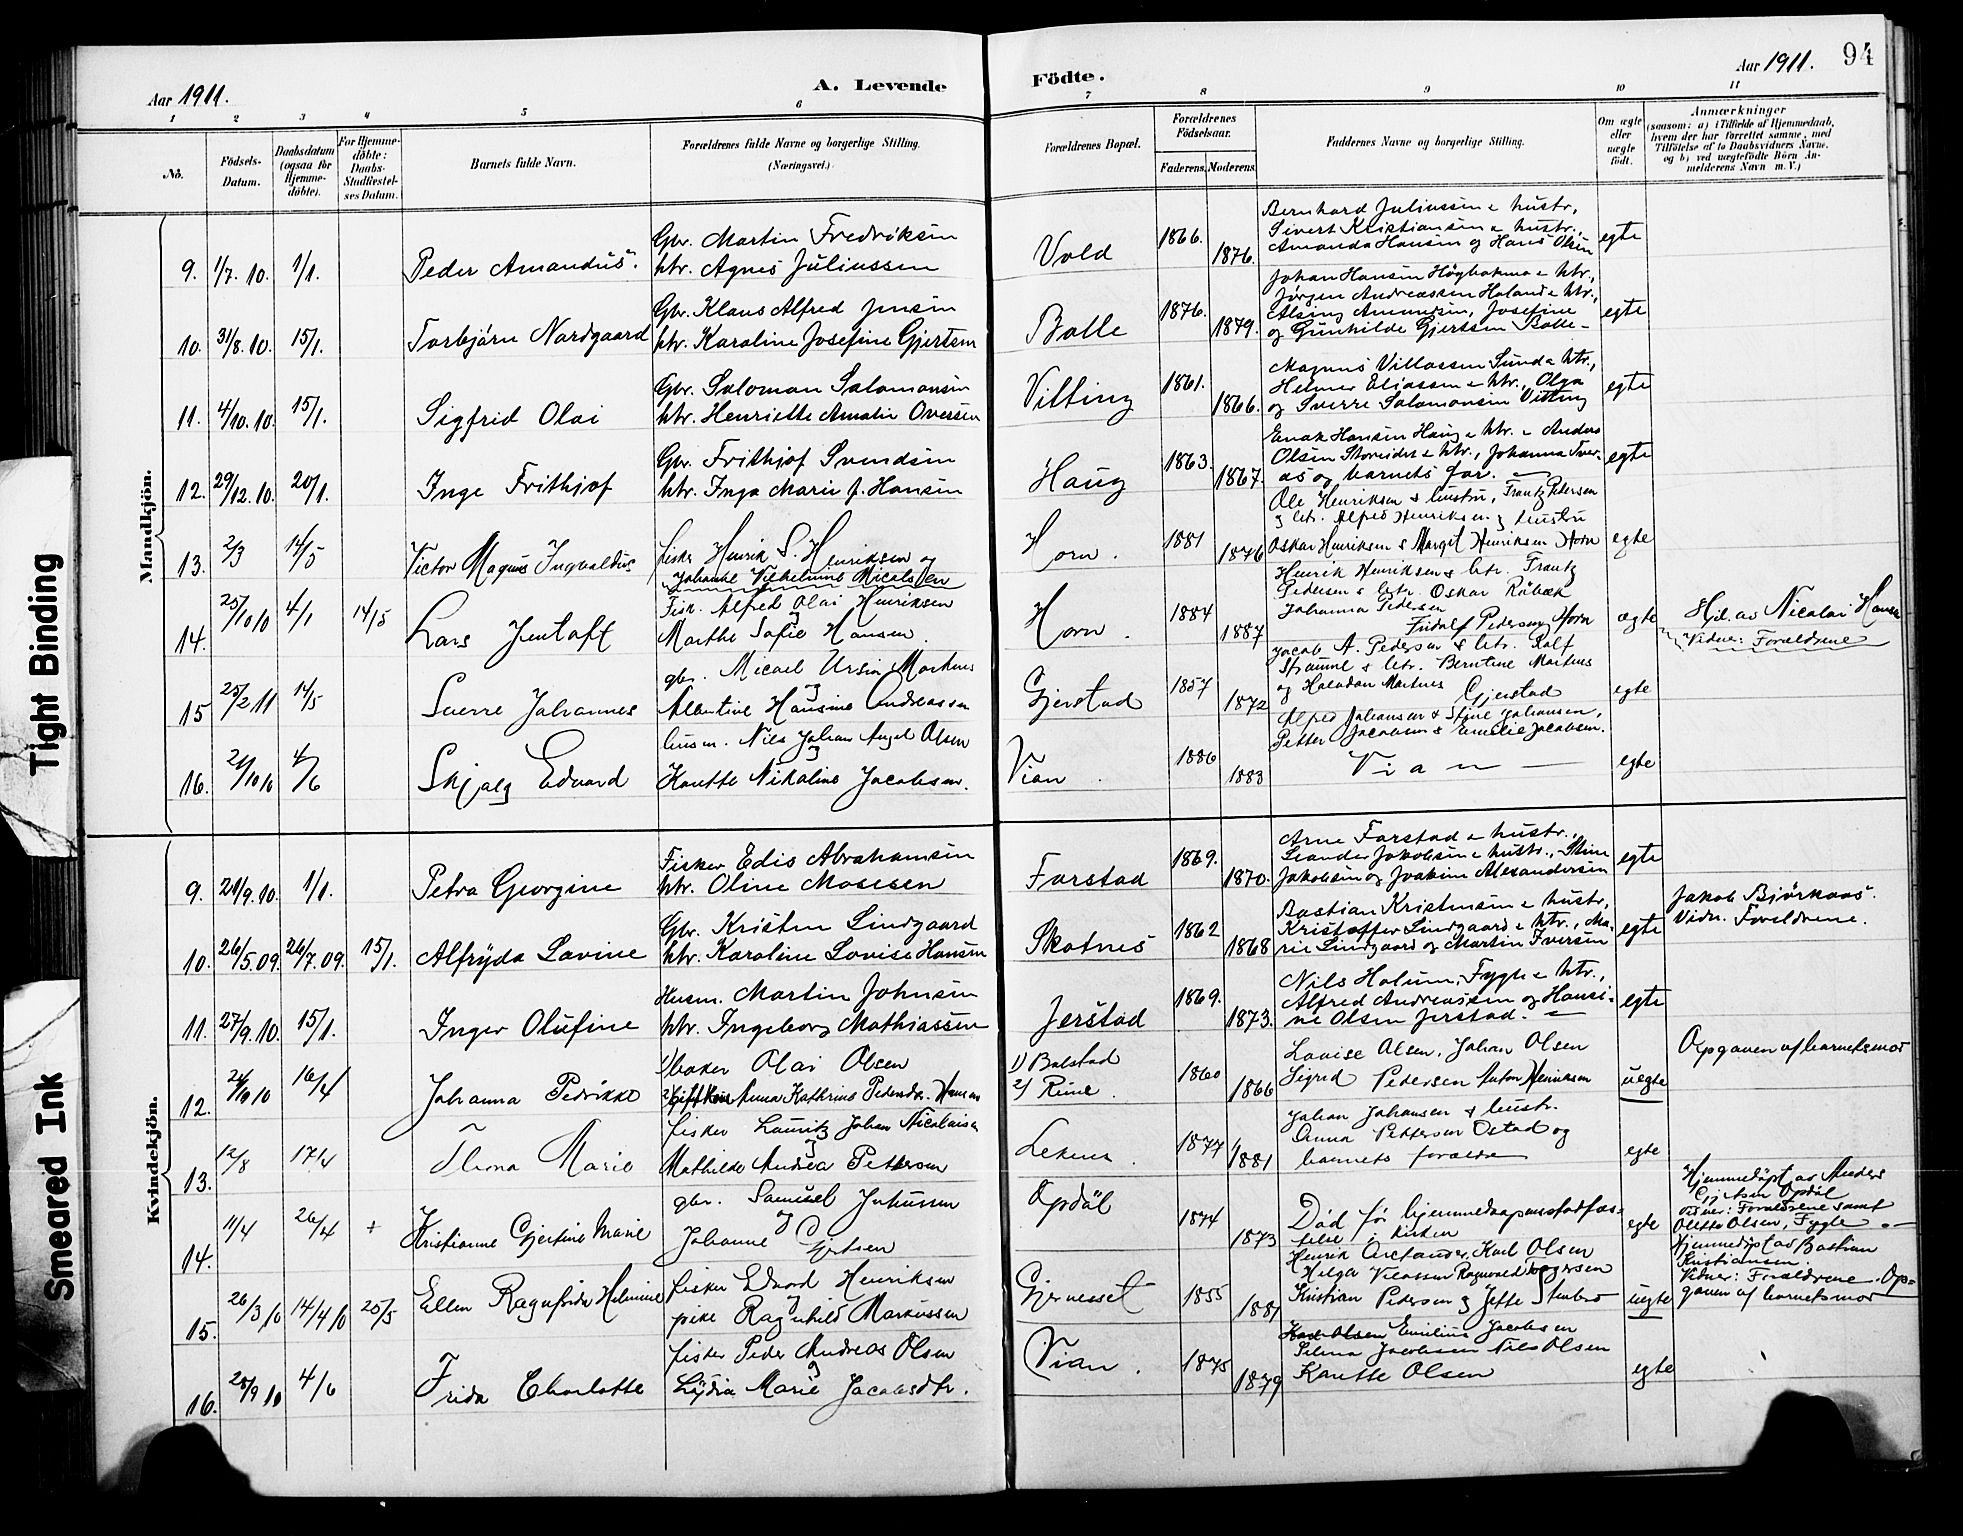 Aar 1911.
A. Levende
Födte.
Aar 1911.
94
1 2 3 4 5 6 7 8 9 10 11
No.
Födsels-Datum.
Daabsdatum (ogsaa for Hjemme-döbte).
For Hjemme-döbte: Daabs-Stadfæstel-ses Datum.
Barnets fulde Navn.
Forældrenes fulde Navne og borgerlige Stilling.
(Næringsvei.)
Forældrenes Bopæl.
Forældrenes Födselsaar.
Faderens. Moderens.
Faddernes Navne og borgerlige Stilling.
Om ægte eller uægte født.
Anmærkninger
(saasom: a) i Tilfælde af Hjemmedaab,
hvem der har forrettet samme, med
Tilföielse af to Daabsvidners Navne.
og b) ved uægtefødte Börn An-
melderens Navn m. V.)
Mandkjön.
9. 1/7. 10. 1/1. Peder Amandus.
Gbr. Martin Fredriksen
htr. Agnes Juliussen
Vold 1866. 1876.
Bernhard Juliussen & hustr.,
Sivert Kristiansen & hustr.,
Amanda Hansen og Hans Olsen
egte
10. 31/8. 10. 15/1. Torbjørn Nordgaard
Gbr. Klaus Alfred Jensen
htr. Karoline Josefine Gjertsen
Bolle 1876. 1879.
Johan Hansen & htr.,
Jørgen Andreassen Holand & htr.,
Josefine
og Gunhilde Gjertsen Bolle
egte
11. 4/10. 10. 15/1. Sigfrid Olai
Gbr. Salomon Salomonsen
htr. Henriette Amalie Oversen
Vitting 1861. 1866.
Magnus Villassen Sund & htr.,
Helmer Eliassen & htr., Olga
og Sverre Salomonsen Vitting
egte
12. 29/12. 10. 20/1. Inge Frithjof
Gbr. Frithjof Svendsen
htr. Inga Marie J. Hansen
Haug 1863. 1867.
Enok Hansen Haug & htr. & Anders
Olsen & htr., Johanna Tver-
ås og barnets far.
egte
13. 2/3 14/5 Victor Magnus Ingvaldus
fisker Henrik S. Henriksen og
Johanne Vilhelmine Nicolaisen
Horn. 1881 1876
Ole Henriksen & hustru, Frantz Pedersen
& htr. Alfred Henriksen & hustru
Oskar Henriksen & Margit Henriksen Horn
egte
14. 25/10 10 4/1 14/5 Lars Jentoft
Fisk. Alfred Olai Henriksen
Marthe Sofie Hansen.
Horn. 1884 1887
Henrik Henriksen & htr. Frantz
Pedersen & htr. Oskar Råbek
Johanna Pedersen
Fridolf Pedersen Horn
ægte
Hjd. av Nicolai Hansen
Vidner: Forældrene
15 25/2 11 14/5 Sverre Johannes
gbr. Micael Ursin Martnes
Albertine Hansine Andreassen
Gjerstad 1857 1872
Jacob A. Pedersen & htr. Rolf
Strømme & htr. Berntine Martnes
og Halvdan Martnes Gjerstad
egte
16. 21/10 10 4/6 Skjalg Edvard
husm. Nils Johan Angel Olsen
Kanutte Nikoline Jacobsen.
Vian. 1886 1883
Alfred Johansen & Stine Johansen,
Petter Jacobsen & Emelie Jacobsen.
Vian
egte
Kvindekjön.
9. 21/9. 10. 1/1. Petra Georgine
Fisker Edis Abrahamsen
htr. Oline Mosesen
Farstad 1869. 1870.
Arne Farstad & hustr.,
Leander Jakobsen & hustr., Stine
Jakobsen og Joakim Alexandersen
egte
10. 26/5. 09. 26/7. 09. 15/1. Alfryda Lovine
Gbr. Kristen Lindgaard
htr. Karoline Lovise Hansen
Skotnes 1862 1868
Bastian Kristensen & hustr.,
Kristoffer Lindgaard & htr., Ma-
rie Lindgaard og Martin Iversen
egte
Jakob Bjørkaas.
Vidn. Foreldrene.
11. 27/9. 10. 15/1. Inger Olufine
Husm. Martin Johnsen
htr. Ingeborg Mathiassen
Jerstad 1869. 1873.
Nils Holum, Fygle & htr.,
Alfred Andreassen og Hansi-
ne Olsen Jerstad.
egte
12. 24/9 10 16/4 Johanna Pedrikke
1) baker Olai Olsen
2) Anna Kathrine Pedersdtr. Hansen
1) Balstad
2) Rine.
1860 1866
Lovise Olsen, Johan Olsen
Sigrid Pedersen Anton Henriksen
uegte
Opgaven af barnets mor
13. 12/8 17/4 Thona Marie
fisker Lauritz Johan Nicolaisen
og
Mathilde Andrea Pettersen
Leknes. 1877 1881
Johan Johansen & hustr.
Anna Pettersen Ostad og
barnets forældre
egte
14. 11/4 26/4 + Kristianne Gjertine Marie
gbr. Samuel Johnsen
og
Johanne Gjertsen
Opdøl 1874 1873
Død før hjemmedaapens stadfæs-
telse i kirken
egte
Hjemmedøpt av Anders
Gjertsen Opdøl
Vidner: Forældrene samt
Olette Olsen, Fygle.
15. 26/3 10 14/4 10 25/5 Ellen Ragnfrida Helmine
fisker Edvard Henriksen
og
pike Ragnhild Markussen
Gjernesset 1855 1881
Henrik Arctander, Karl Olsen
Helga Vilassen Ragnvald Torgersen
Kristian Pedersen og Jette Stenbro
uegte
Hjemmedøpt av Bastian
Kristiansen.
Vidner: Forældrene. Op-
gaven af barnets mor
16. 25/9 10 4/6 Frida Charlotte
fisker Peder Andreas Olsen
Lydia Marie Jacobsdtr.
Vian. 1875 1879
Karl Olsen Emilius Jacobsen
Selma Jacobsen Nils Olsen
Kanutte Olsen
egte
Tight Binding
Smeared Ink